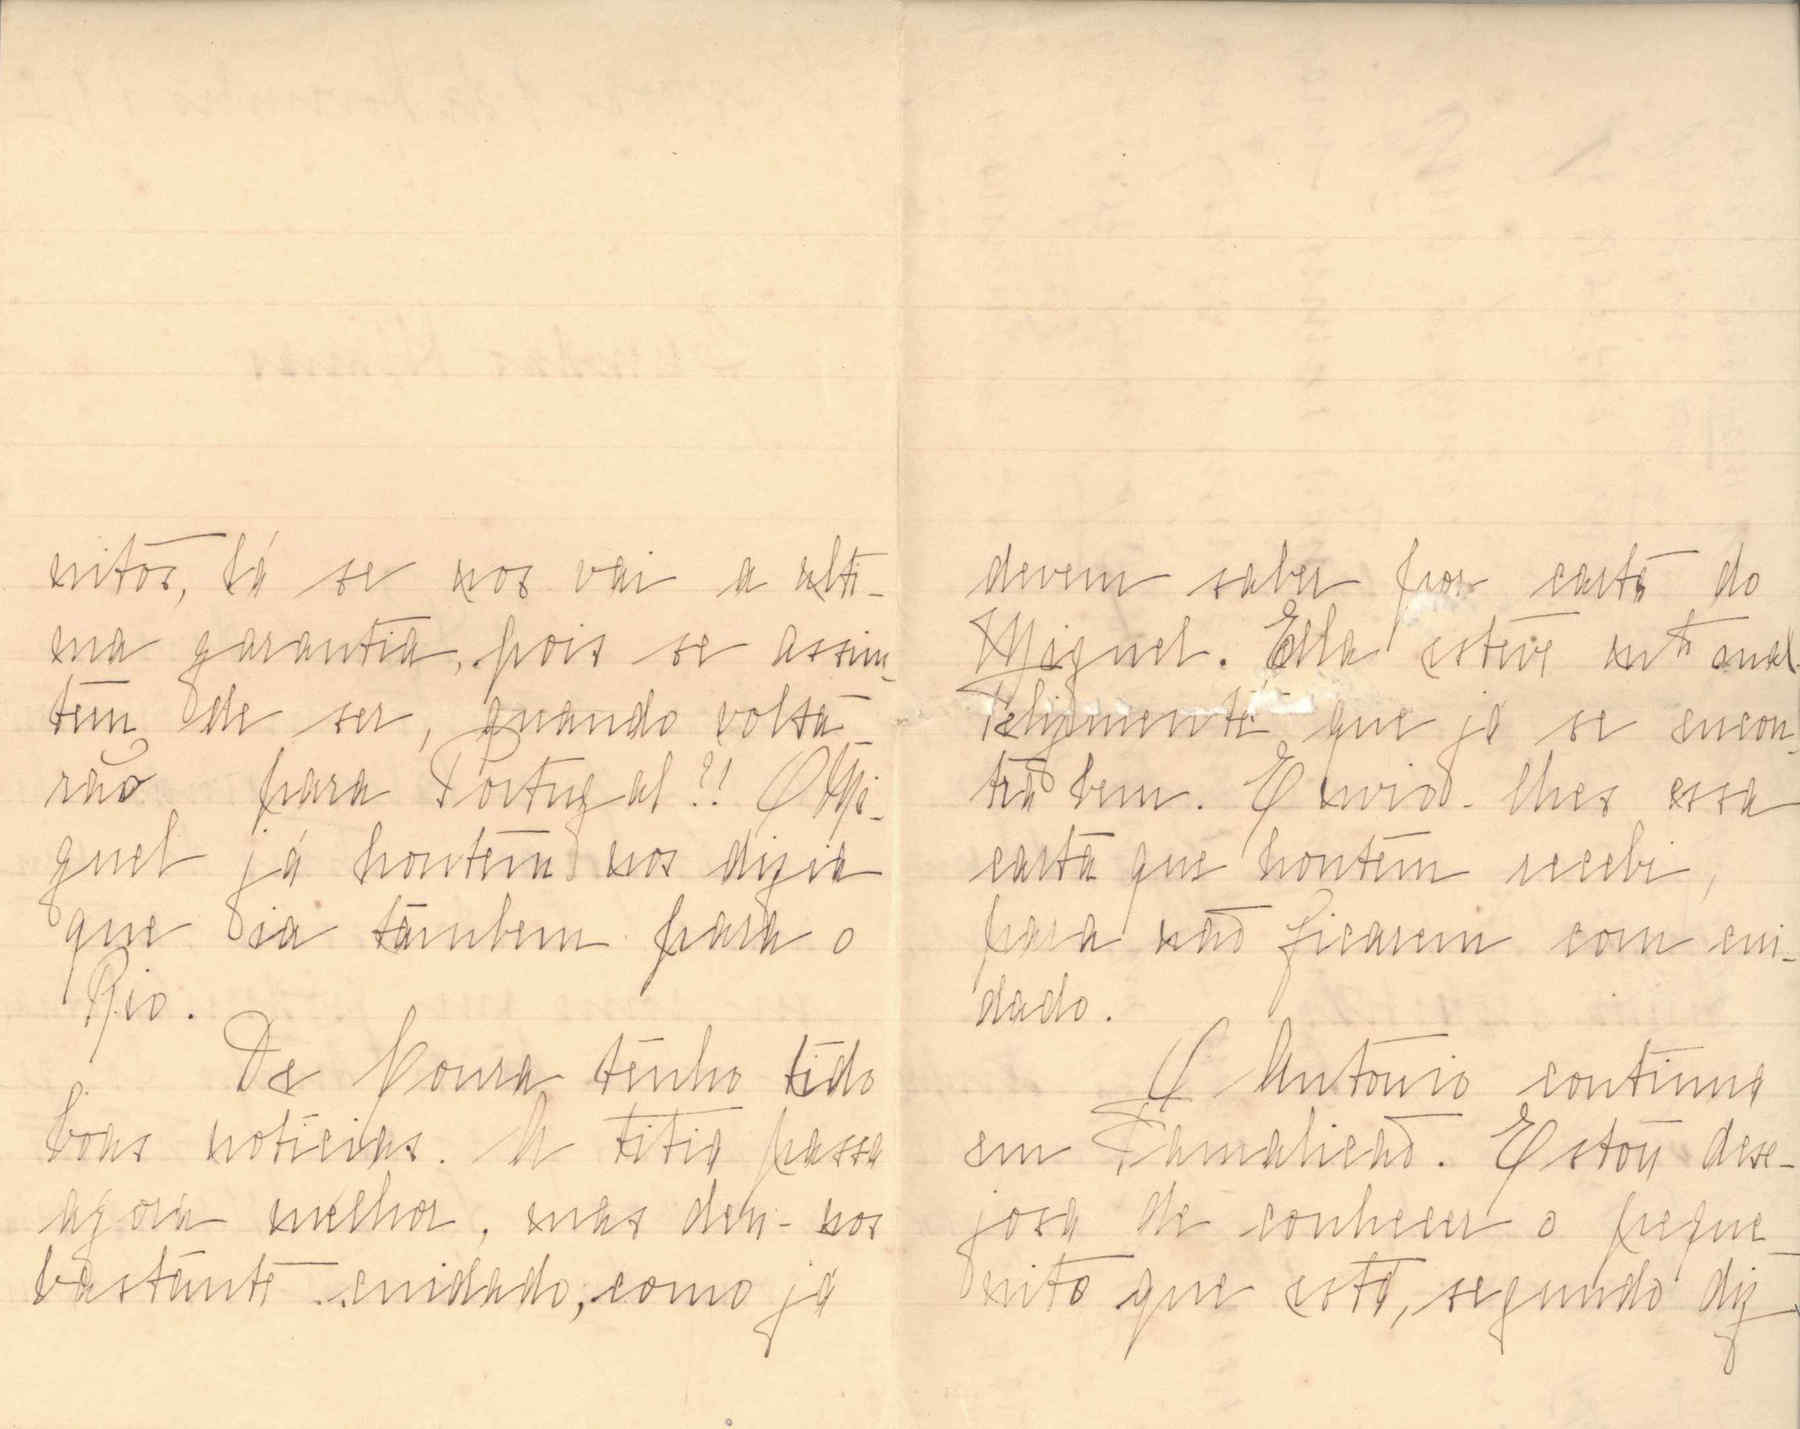 nitos, lá se nos vai a ulti-
ma garantia, pois se assim
tem de ser, quando volta-
rão para Portugal?! O Mi-
guel já hontem nos dizia
que ia tambem para o
Rio.
De Moura tenho tido
boas noticias. A titia passa
agora melhor, mas deu-nos
bastante cuidado, como já
devem saber por carta do
Miguel. Ella esteve mto mal.
Felizmente que já se encon-
tra bem. Envio-lhes essa
carta que hontem recebi,
para não ficarem com cui-
dado.
O Antonio continua
em Famalicão. Estou dese-
josa de conhecer o peque-
nito que está, segundo diz